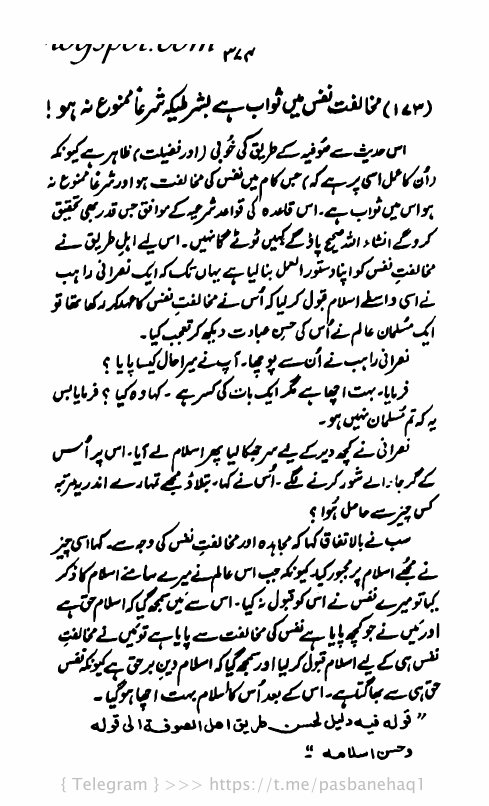 ۳۷۴
(۱۷۳) مخالفت نفس میں ثواب ہے بشرطیکہ شرعاً ممنوع نہ ہو!
اس حدیث سے صوفیہ کے طریق کی خُوبی (اور فضیلت) ظاہر ہے کیونکہ
(اُن کا عمل اسی پر ہے کہ) جس کام میں نفس کی مخالفت ہو اور شرعاً ممنوع نہ
ہو اس میں ثواب ہے۔ اس قاعدہ کی قواعد شرعیہ کے موافق جس قدر بھی تحقیق
کرو گے انشاء اللہ صحیح پاؤ گے کہیں ٹوٹے گا نہیں۔ اس لیے اہلِ طریق نے
مخالفتِ نفس کو اپنا دستور العمل بنا لیا ہے یہاں تک کہ ایک نصرانی راہب
نے اسی واسطے اسلام قبول کر لیا کہ اُس نے مخالفت نفس کا عہد کر رکھا تھا تو
ایک مُسلمان عالم نے اُس کی حسن عبادت دیکھ کر تعجب کیا۔
نصرانی راہب نے اُن سے پوچھا۔ آپ نے میرا حال کیسا پایا؟
فرمایا۔ بہت اچھا ہے مگر ایک بات کی کسر ہے۔ کہا وہ کیا؟ فرمایا بس
یہ کہ تم مُسلمان نہیں ہو۔
نصرانی نے کچھ دیر کے لیے سر جھکا لیا پھر اسلام لے آیا۔ اس پر اُس
کے گرجا والے شور کرنے لگے۔ اُس نے کہا۔ بتلاؤ مجھے تمہارے اندر یہ مرتبہ
کس چیز سے حاصل ہُوا؟
سب نے بالاتفاق کہا کہ مجاہدہ اور مخالفتِ نفس کی وجہ سے۔ کہا اسی چیز
نے مجھے اسلام پر مجبور کیا۔ کیونکہ جب اس عالم نے میرے سامنے اسلام کا ذکر
کیا تو میرے نفس نے اس کو قبول نہ کیا۔ اس سے میں سمجھ گیا کہ اسلام حق ہے
اور میں نے جو کچھ پایا ہے نفس کی مخالفت سے پایا ہے تو میں نے مخالفتِ
نفس ہی کے لیے اسلام قبول کر لیا اور سمجھ گیا کہ اسلام دین برحق ہے کیونکہ نفس
حق ہی سے بھاگتا ہے۔ اس کے بعد اُس کا اسلام بہت اچھا ہو گیا۔
”قوله فيه دليل لحسن طريق اهل الصوفة الى قوله
وحسن اسلامه“
{ Telegram } >>> https://t.me/pasbanehaq1